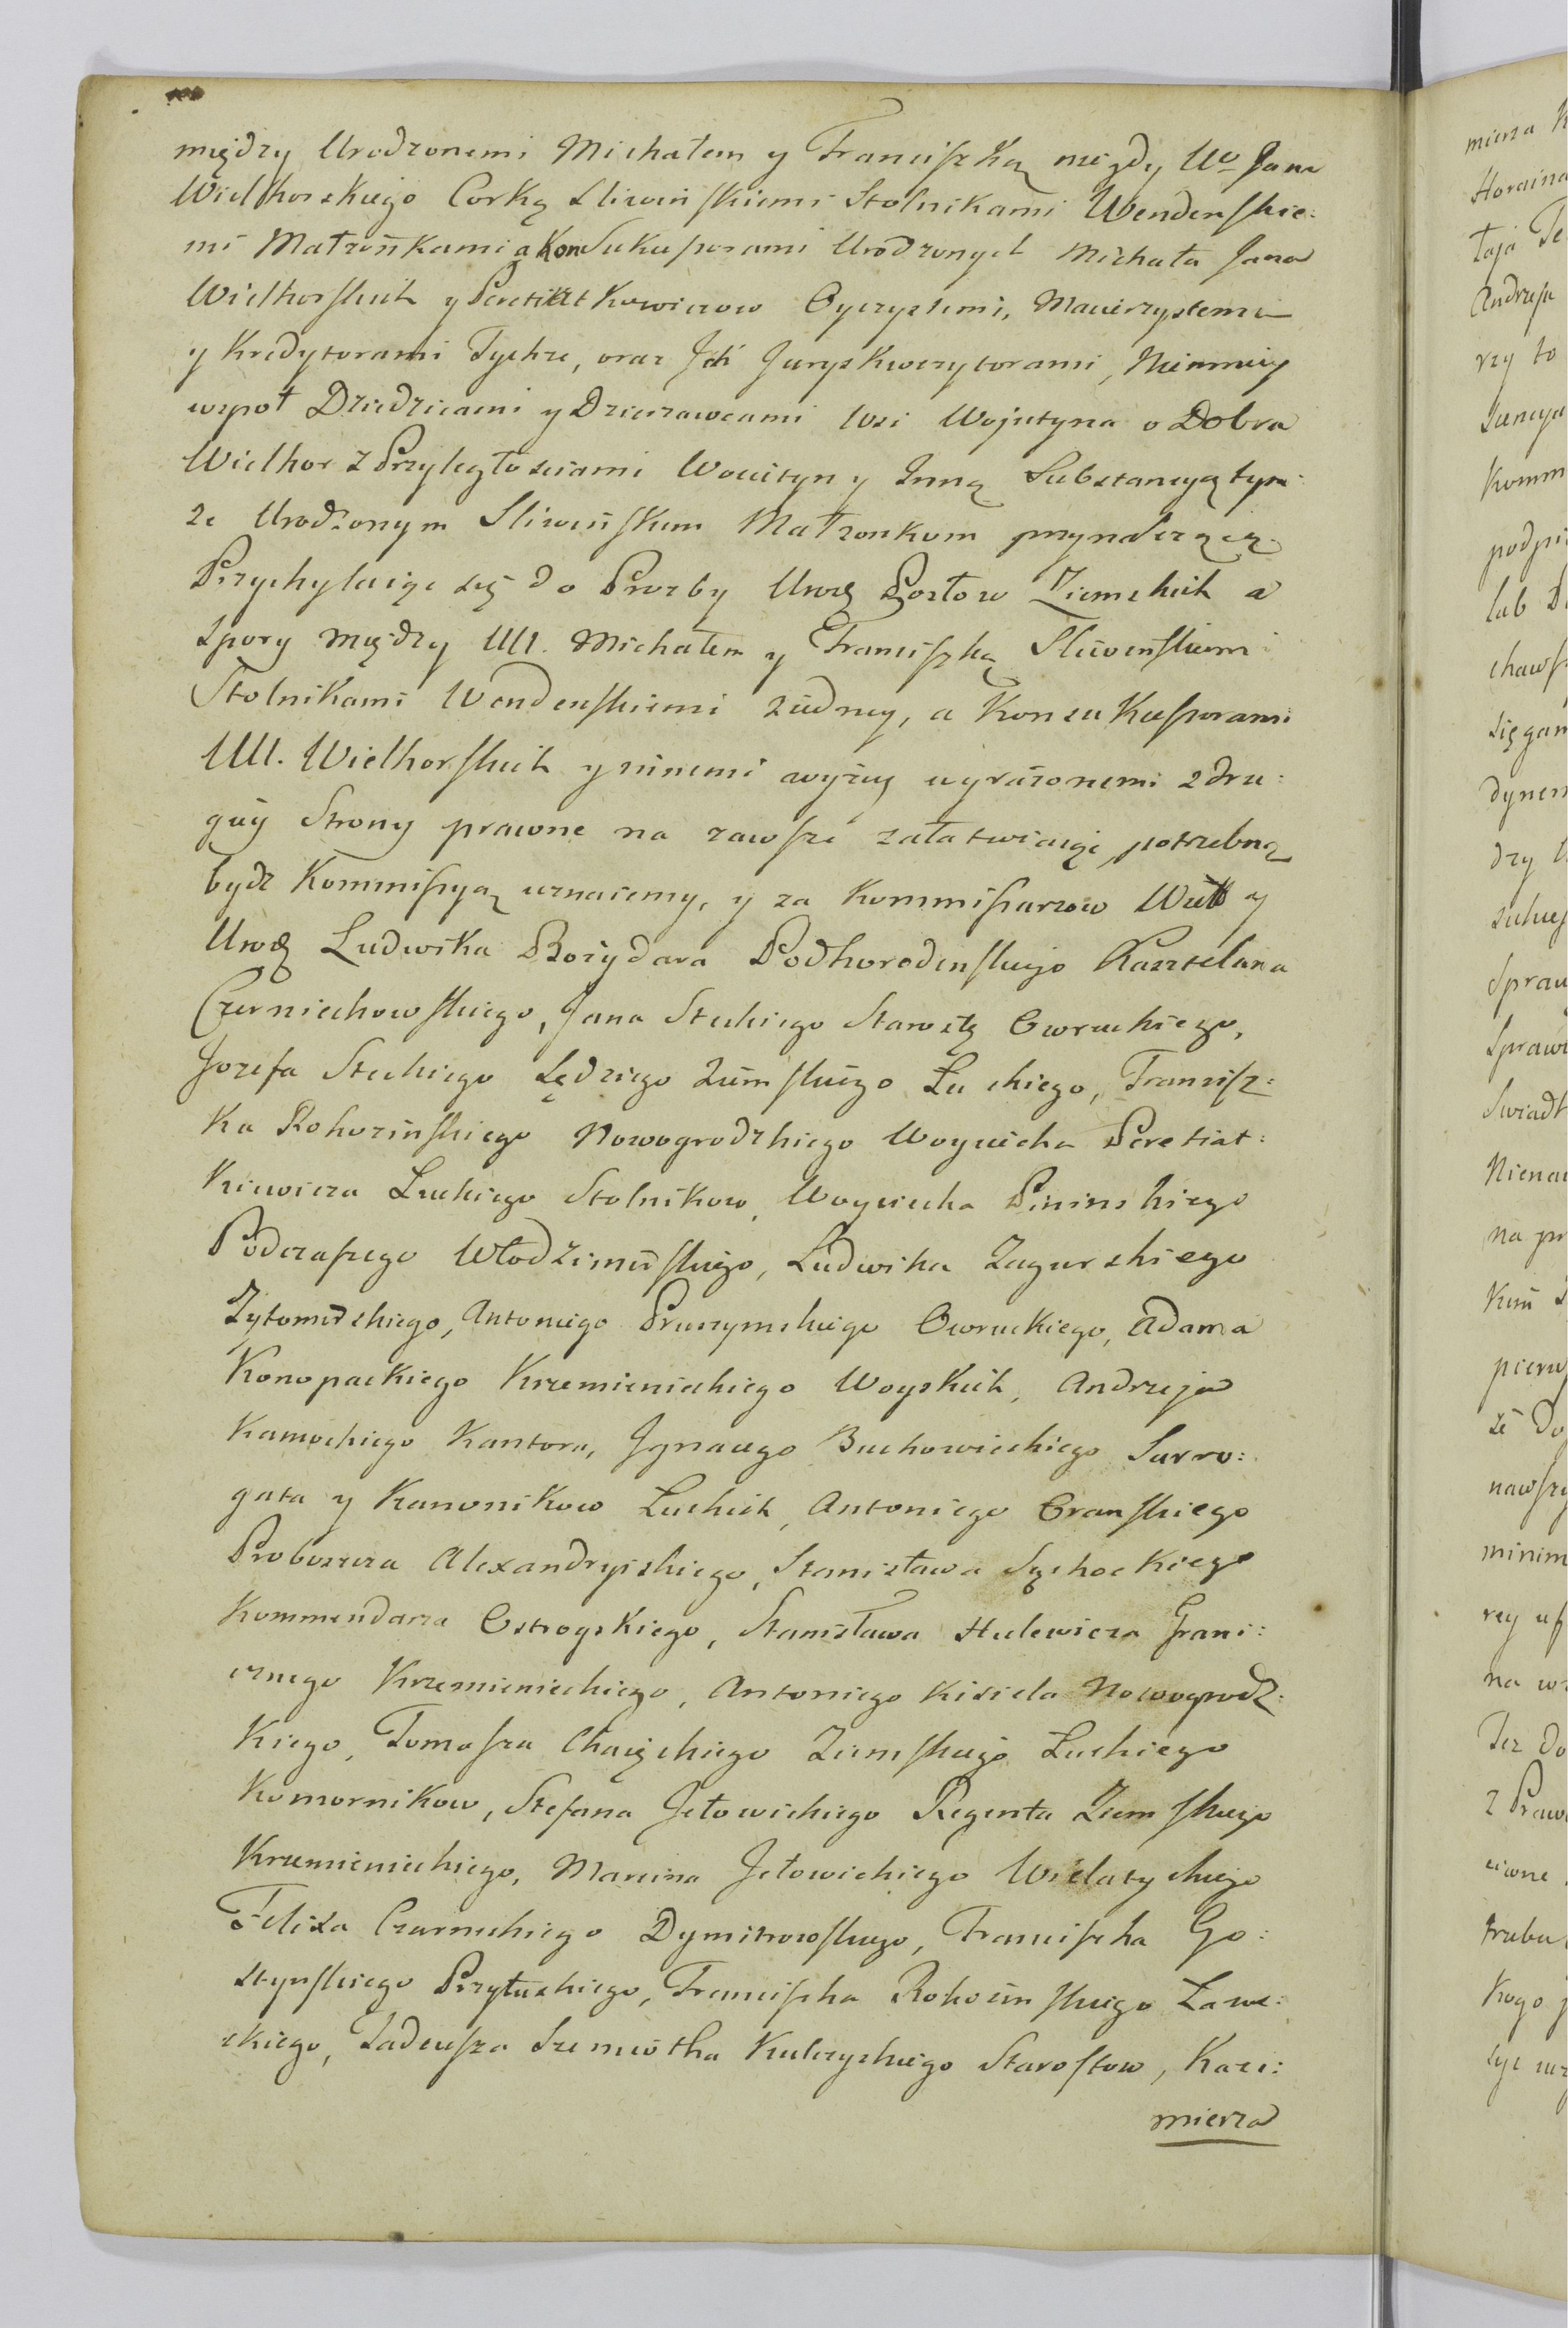 między Urodzonemi Michałem y Franciszką niegdy Uo Jana
Wielhorskiego Corką Sliwinskiemi Stolnikami Wendenskie:
mi Małżonkami a Konsukcessorami Urodzonych Michała Jana
Wielhorskich y Peretiatkowiczow Oyczystemi, Macierzystemi
y Kredytorami Tychże, oraz Ich Juryskwezytorami, Niemniey
wspoł Dziedzicami y Dzierzawcami Wsi Wojutyna o Dobra
Wielhor z Przyległosciami Woiutyn y Inną Substancyą tym:
że Urodzonym Sliwinskim Małżonkom przynalezącą
Przychylaiąc się do Prozby Urodz Posłow Ziemskich a
spory między UU. Michałem y Franciszką Sliwinskiemi
Stolnikami Wendenskiemi z iedney, a Konsukcessorami
UU. Wielhorskich y innemi wyżey wyrażonemi z dru:
giey Strony prawne na zawsze załatwiaiąc potrzebną
bydz Kommissyą uznaiemy, y za Kommissarzow Wiel. y
Urodz Ludwika Bożydara Podhorodenskiego Kasztelana
Czerniechowskiego, Jana Steckiego Starostę Owruckiego,
Jozefa Steckiego Sędziego Ziemskiego Łuckiego, Francisz:
ka Rohozinskiego Nowogrodzkiego Woyciecha Peretiat:
kiewicza Luckiego Stolnikow, Woyciecha Pininskiego
Podczaszego Włodzimirskiego, Ludwika Zagurskiego
Żytomirskiego, Antoniego Pruszynskiego Owruckiego, Adama
Konopackiego Krzemienieckiego Woyskich, Andrzeja
Kamockiego Kantora, Ignacego Buchowieckiego Surro:
gata y Kanonikow Łuckich, Antoniego Oranskiego
Proboszcza Alexandryiskiego, Stanisława Sęhockiego
Kommendarza Ostrogskiego, Stanisława Hulewicza Grani:
cznego Krzemienieckiego, Antoniego Kisiela Nowogrodz:
kiego, Tomasza Chaięckiego Ziemskiego Łuckiego
Komornikow, Stefana Jełowickiego Regenta Ziemskiego
Krzemienieckiego, Marcina Jełowickiego Wielatyckiego
Felixa Czarneckiego Dymitrowskiego, Franciszka Go:
stynskiego Przyłuskiego, Franciszka Rohozinskiego Zawe:
ckiego, Tadeusza Szemiotha Kulczyckiego Starostow, Kazi:
mierza